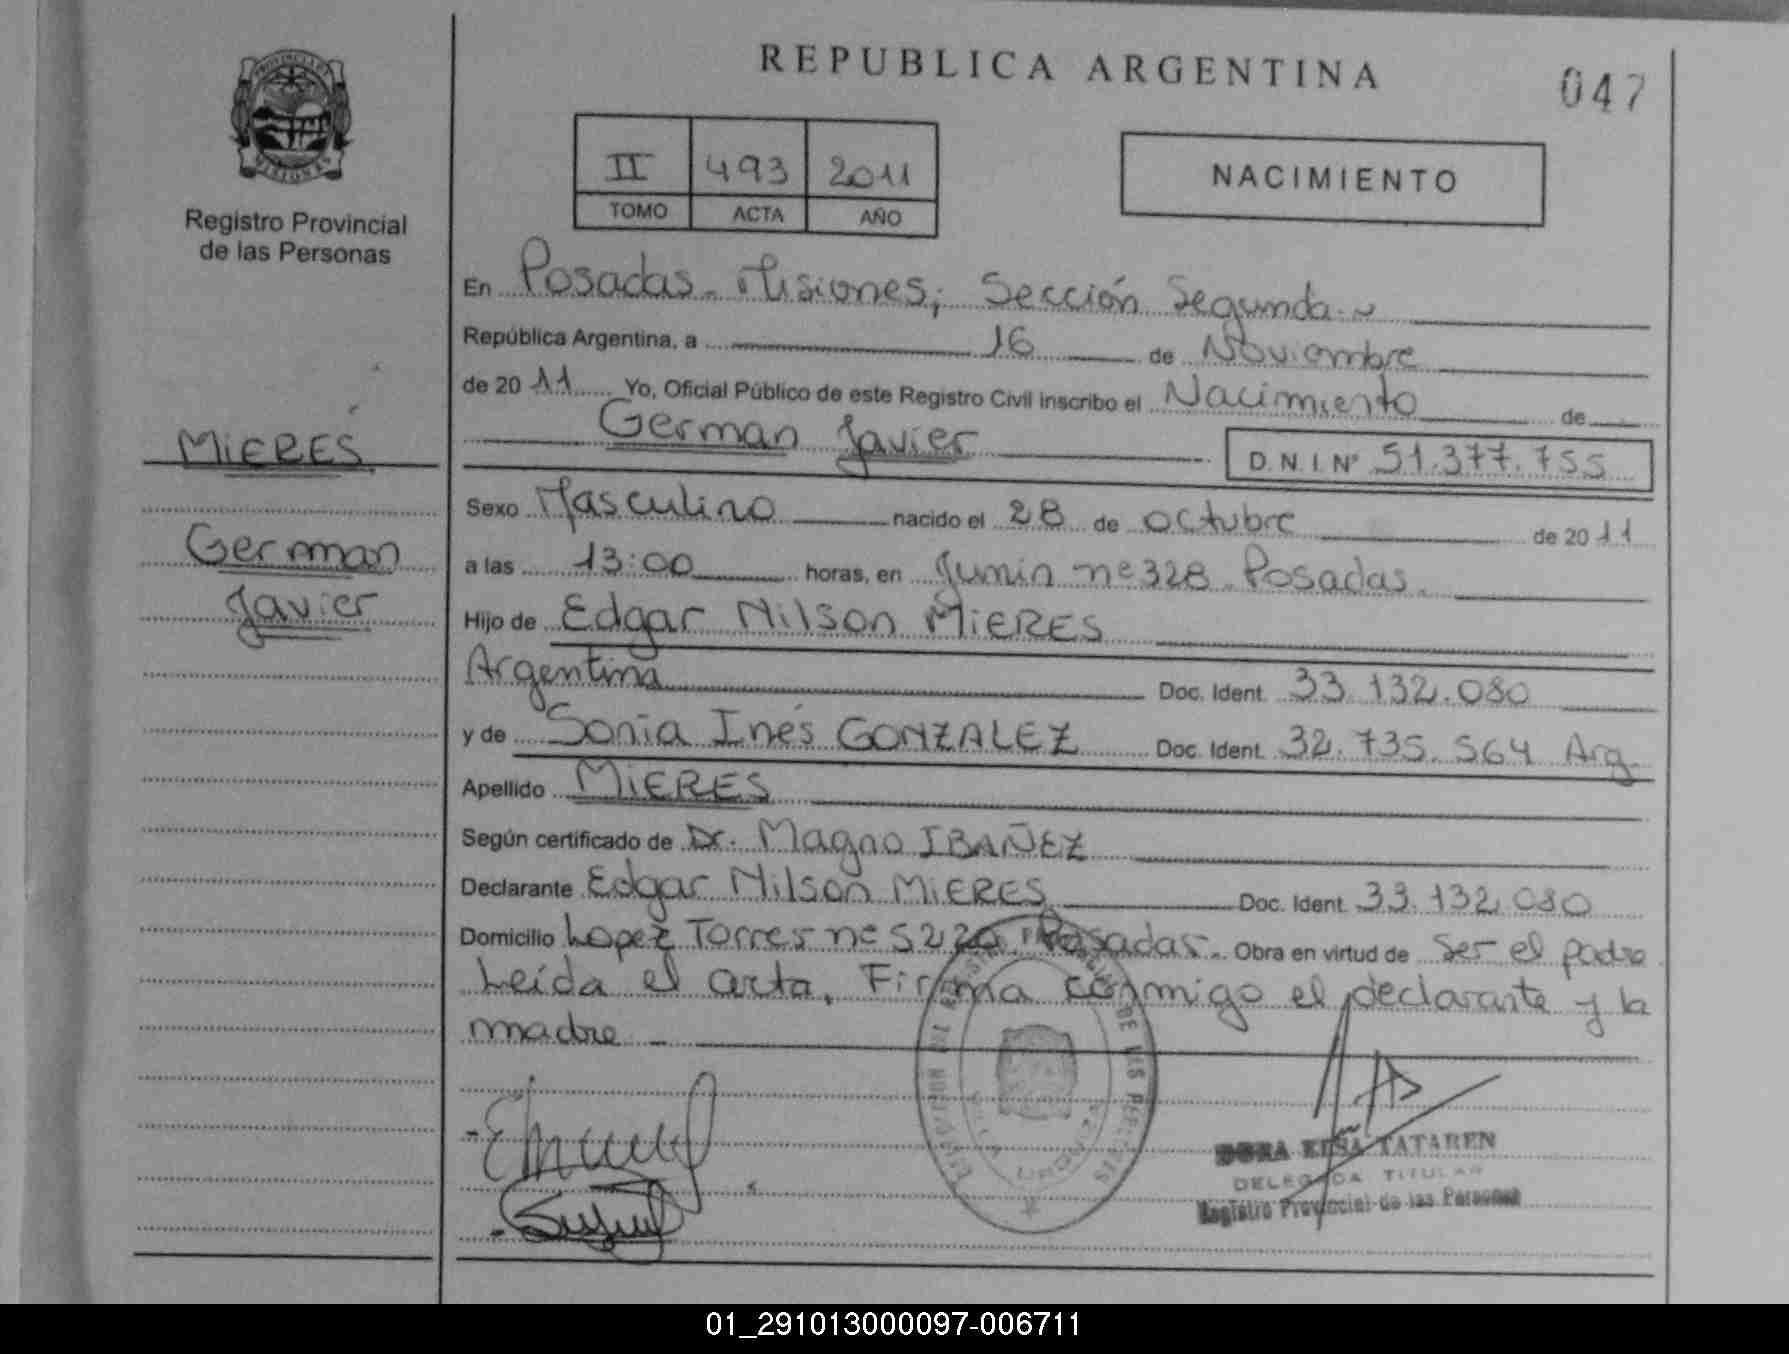 REPUBLICA ARGENTINA
047
PROVINCIA DE
MISIONES
Registro Provincial
de las Personas
II 493 2011
TOMO ACTA AÑO
NACIMIENTO
En Posadas. Misiones, Sección Segunda.~
República Argentina, a 16 de Noviembre
de 2011 Yo, Oficial Público de este Registro Civil inscribo el Nacimiento de
German Javier D.N.I. Nº 51.377.755
MiERES
German
Javier
Sexo Masculino nacido el 28 de octubre de 2011
a las 13:00 horas, en Junin nº 328. Posadas.
Hijo de Edgar Nilson MiERES
Argentina Doc. Ident. 33.132.080
y de Sonia Inés GONZALEZ Doc. Ident. 32.735.564 Arg.
Apellido MiERES
Según certificado de Dr. Magno IBAÑEZ
Declarante Edgar Nilson MiERES Doc. Ident. 33.132.080
Domicilio Lopez Torres nº 5220 Posadas. Obra en virtud de Ser el padre
Leida el acta, Firma conmigo el declarante y la
madre
TATAREN
DELEGADA TITULAR
Registro Provincial de las Personas
01_291013000097-006711